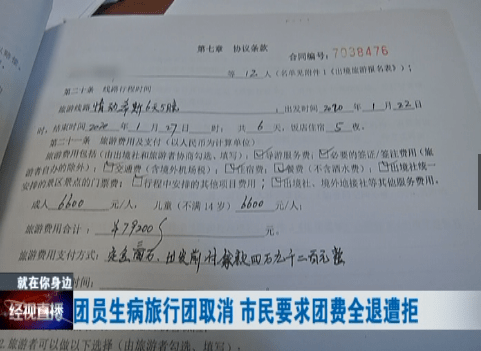 第七章 协议条款
合同编号：7038476
等 12 人（名单见附件1《出境旅游报名表》）；
第二十条 线路行程时间
旅游线路 情动 6天5晚 ，出发时间 2020 年 1 月 22 日
时，结束时间 2020 年 1 月 27 日 时；共 6 天，饭店住宿 5 夜。
第二十一条 旅游费用及支付（以人民币为计算单位）
旅游费用包括（由出境社和旅游者协商勾选，填写）：☑导游服务费；☑必要的签证/签注费用（旅
游者自办的除外）；☑交通费（含境外机场税）；☑住宿费；☑餐费（不含酒水费）；☑出境社统一
安排的景区景点的门票费；☑行程中安排的其他项目费用；☑出境社、境外地接社等其他服务费用。
成人 6600 元/人； 儿童（不满14岁） 6600 元/人；
旅游费用合计： ￥79200 元。
旅游费用支付方式： 定金 ，出发前付 款四万九千二百元整
时间：
就在你身边
经视直播
团员生病旅行团取消 市民要求团费全退遭拒
2.旅游者可以做以下选择（由旅游者勾选、填写）：